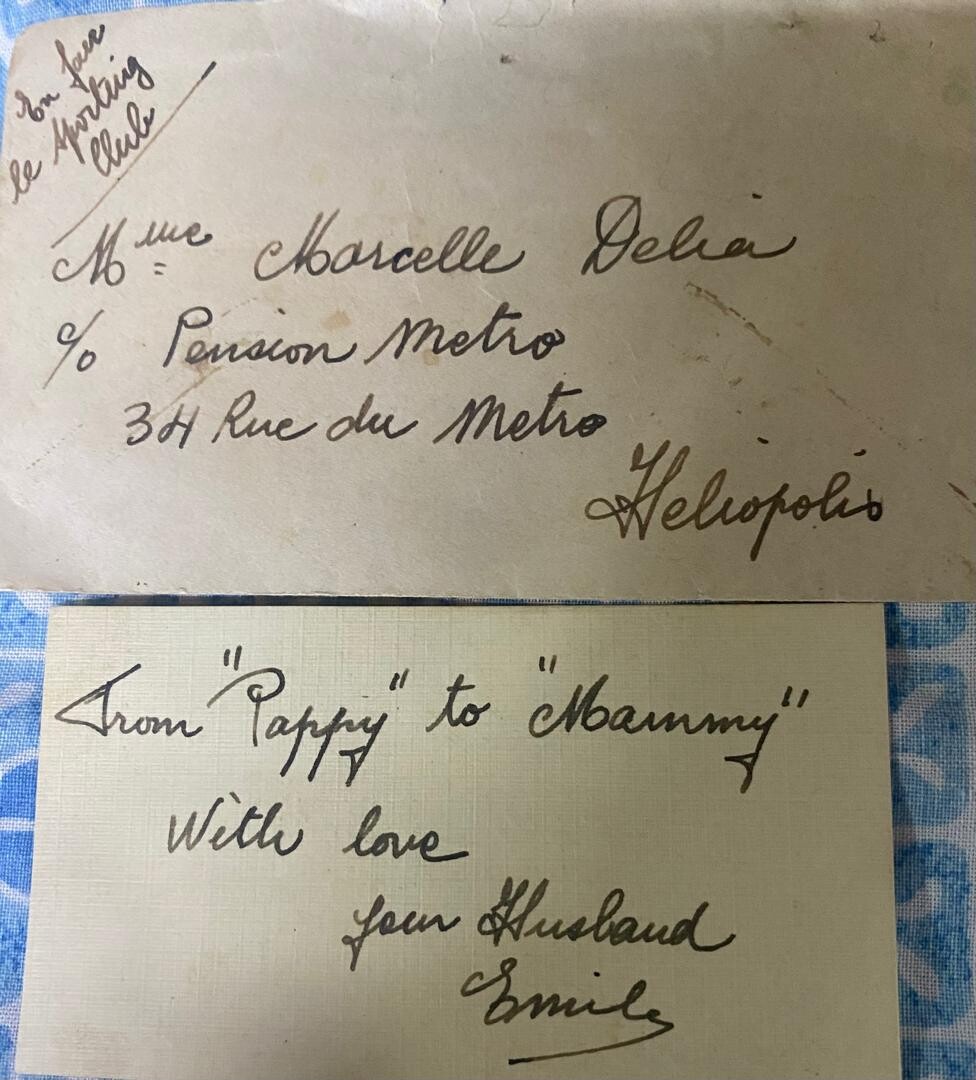 En face
le Sporting
Club
Mme Marcelle Delia
c/o Pension Metro
34 Rue du Metro
Heliopolis
From "Pappy" to "Mammy"
With love
your Husband
Emile